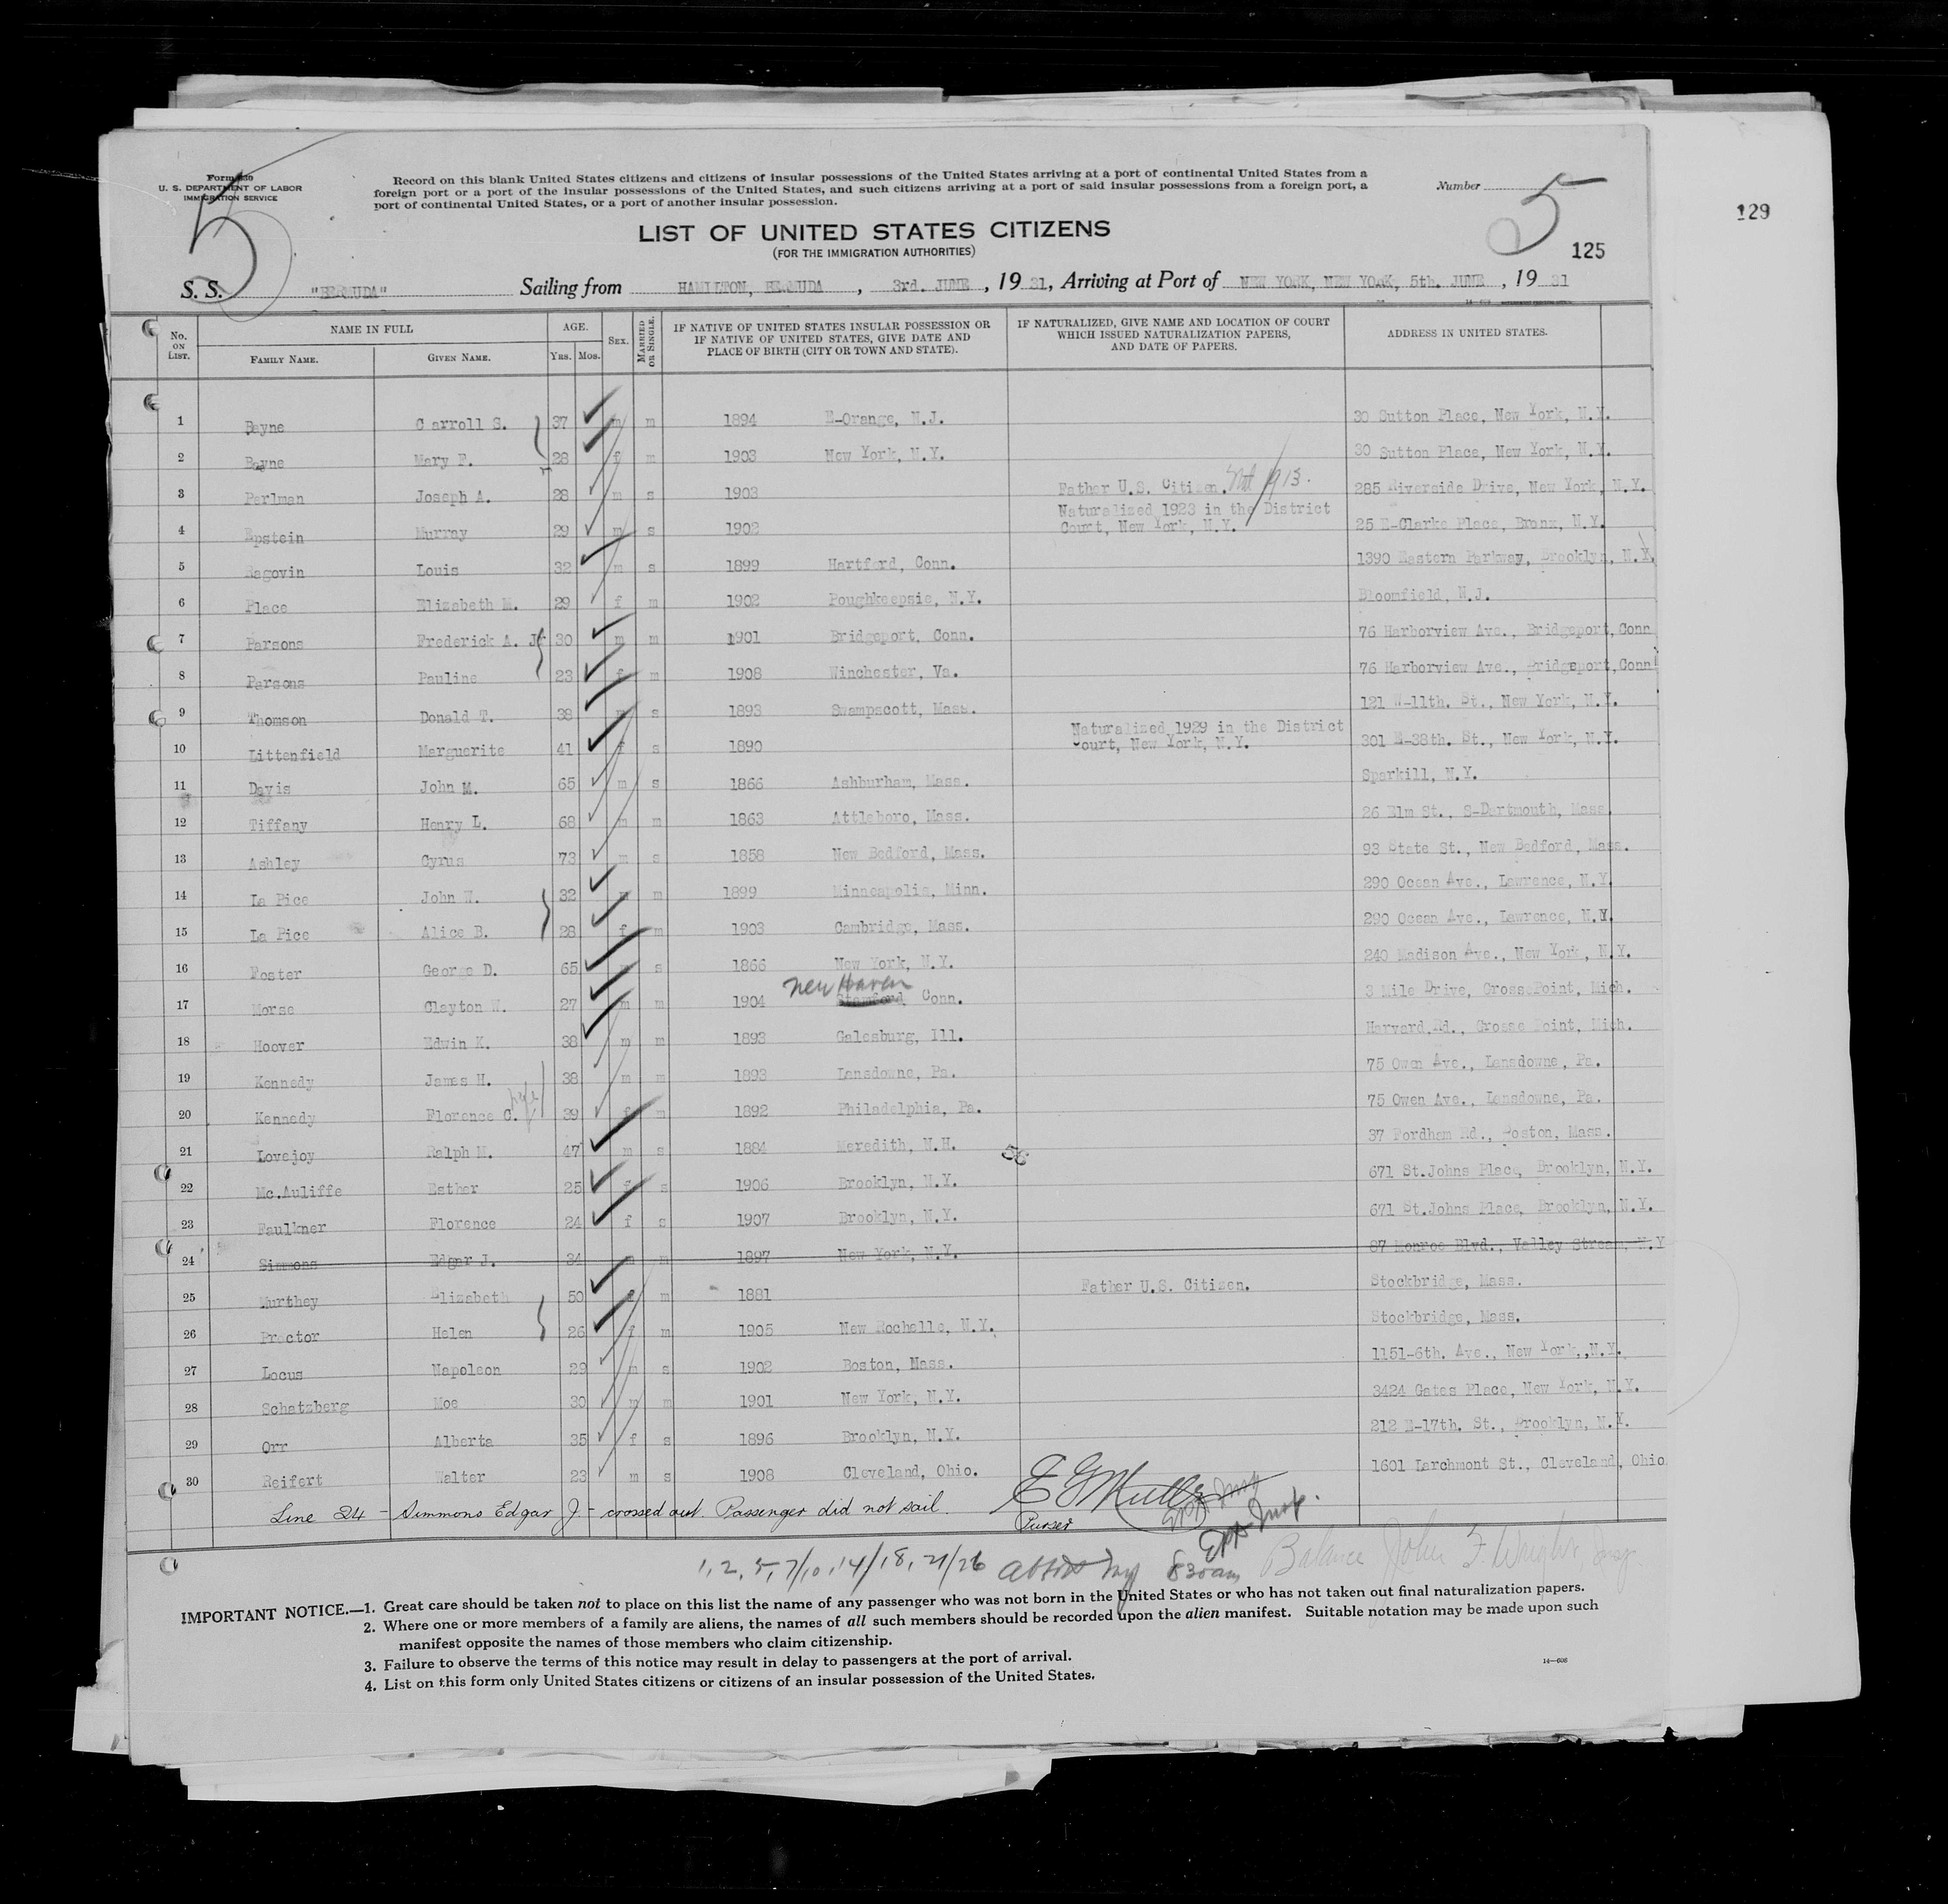 Form 630
U. S. DEPARTMENT OF LABOR
IMMIGRATION SERVICE
5
Record on this blank United States citizens and citizens of insular possessions of the United States arriving at a port of continental United States from a
foreign port or a port of the insular possessions of the United States, and such citizens arriving at a port of said insular possessions from a foreign port, a
port of continental United States, or a port of another insular possession.
Number
5
125
129
LIST OF UNITED STATES CITIZENS
(FOR THE IMMIGRATION AUTHORITIES)
S. S. "BERMUDA" Sailing from HAMILTON, BERMUDA , 3rd. JUNE , 19 31, Arriving at Port of NEW YORK, NEW YORK, 5th. JUNE , 19 31
No. ON LIST. NAME IN FULL AGE. SEX. MARRIED OR SINGLE. IF NATIVE OF UNITED STATES INSULAR POSSESSION OR IF NATIVE OF UNITED STATES, GIVE DATE AND PLACE OF BIRTH (CITY OR TOWN AND STATE). IF NATURALIZED, GIVE NAME AND LOCATION OF COURT WHICH ISSUED NATURALIZATION PAPERS, AND DATE OF PAPERS. ADDRESS IN UNITED STATES.
FAMILY NAME. GIVEN NAME. YRS. MOS.
1 Bayne Carroll S. 37 m m 1894 E-Orange, N.J. 30 Sutton Place, New York, N.Y.
2 Bayne Mary F. 28 f m 1903 New York, N.Y. 30 Sutton Place, New York, N.Y.
3 Perlman Joseph A. 28 m s 1903 Father U.S. Citizen. 1913. 285 Riverside Drive, New York, N.Y.
4 Epstein Murray 29 m s 1902 Naturalized 1923 in the District Court, New York, N.Y. 25 E-Clarke Place, Bronx, N.Y.
5 Ragovin Louis 32 m s 1899 Hartford, Conn. 1390 Eastern Parkway, Brooklyn, N.Y.
6 Place Elizabeth M. 29 f m 1902 Poughkeepsie, N.Y. Bloomfield, N.J.
7 Parsons Frederick A. J. 30 m m 1901 Bridgeport, Conn. 76 Harborview Ave., Bridgeport, Conn
8 Parsons Pauline 23 f m 1908 Winchester, Va. 76 Harborview Ave., Bridgeport, Conn
9 Thomson Donald T. 38 s 1893 Swampscott, Mass. 121 W-11th. St., New York, N.Y.
10 Littenfield Marguerite 41 f s 1890 Naturalized 1929 in the District Court, New York, N.Y. 301 E-38th. St., New York, N.Y.
11 Davis John M. 65 m s 1866 Ashburham, Mass. Sparkill, N.Y.
12 Tiffany Henry L. 68 m m 1863 Attleboro, Mass. 26 Elm St., S-Dartmouth, Mass.
13 Ashley Cyrus 73 m s 1858 New Bedford, Mass. 93 State St., New Bedford, Mass.
14 La Pice John W. 32 m m 1899 Minneapolis, Minn. 290 Ocean Ave., Lawrence, N.Y.
15 La Pice Alice B. 28 f m 1903 Cambridge, Mass. 290 Ocean Ave., Lawrence, N.Y.
16 Foster George D. 65 s 1866 New York, N.Y. 240 Madison Ave., New York, N.Y.
17 Morse Clayton W. 27 m m 1904 New Haven Stamford Conn. 3 Mile Drive, Grosse Point, Mich.
18 Hoover Edwin K. 38 m m 1893 Galesburg, Ill. Harvard Rd., Grosse Point, Mich.
19 Kennedy James H. 38 m m 1893 Lansdowne, Pa. 75 Owen Ave., Lansdowne, Pa.
20 Kennedy Florence C. 39 f m 1892 Philadelphia, Pa. 75 Owen Ave., Lansdowne, Pa.
21 Lovejoy Ralph M. 47 m s 1884 Meredith, N.H. 37 Fordham Rd., Boston, Mass.
22 Mc.Auliffe Esther 25 f s 1906 Brooklyn, N.Y. 671 St.Johns Place, Brooklyn, N.Y.
23 Faulkner Florence 24 f s 1907 Brooklyn, N.Y. 671 St.Johns Place, Brooklyn, N.Y.
24 Simmons Edgar J. 34 m m 1897 New York, N.Y. 87 Monroe Blvd., Valley Stream, N.Y
25 Murthey Elizabeth 50 f m 1881 Father U.S. Citizen. Stockbridge, Mass.
26 Proctor Helen 26 f m 1905 New Rochelle, N.Y. Stockbridge, Mass.
27 Locus Napoleon 29 m s 1902 Boston, Mass. 1151-6th. Ave., New York, N.Y.
28 Schatzberg Moe 30 m m 1901 New York, N.Y. 3424 Gates Place, New York, N.Y.
29 Orr Alberta 35 f s 1896 Brooklyn, N.Y. 212 E-17th. St., Brooklyn, N.Y.
30 Reifert Walter 23 m s 1908 Cleveland, Ohio. 1601 Larchmont St., Cleveland, Ohio
Line 24 - Simmons Edgar J. - crossed out. Passenger did not sail.
Purser
1, 2, 5, 7/10, 14/18, 21/26 830am Balance John F. Wright Insp.
IMPORTANT NOTICE.—1. Great care should be taken not to place on this list the name of any passenger who was not born in the United States or who has not taken out final naturalization papers.
2. Where one or more members of a family are aliens, the names of all such members should be recorded upon the alien manifest. Suitable notation may be made upon such
manifest opposite the names of those members who claim citizenship.
3. Failure to observe the terms of this notice may result in delay to passengers at the port of arrival.
4. List on this form only United States citizens or citizens of an insular possession of the United States.
14—606